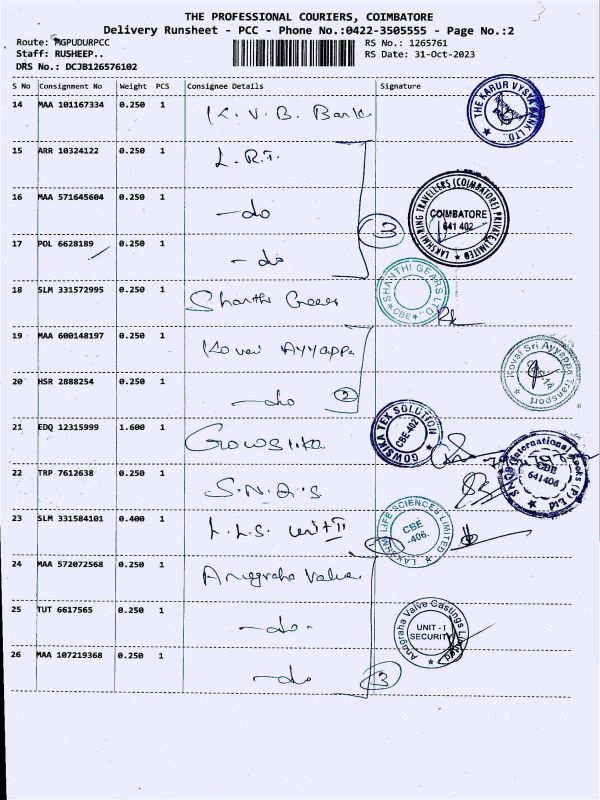 THE PROFESSIONAL COURIERS, COIMBATORE
Delivery Runsheet - PCC - Phone No.:0422-3505555 - Page No.:2
Route: MGPUDURPCC
RS No.: 1265761
Staff: RUSHEEP..
RS Date: 31-Oct-2023
DRS No.: DCJB126576102
S No Consignment No Weight PCS Consignee Details Signature
14 MAA 101167334 0.250 1 K. V. B. Bank
THE KARUR VYSYA BANK LTD.
15 ARR 10324122 0.250 1 L.R.T.
16 MAA 571645604 0.250 1 - do
3
LAKSHMI RING TRAVELLERS (COIMBATORE) PRIVATE LIMITED
COIMBATORE
641 402
17 POL 6628189 0.250 1 - do
18 SLM 331572995 0.250 1 Shanthi Gears
SHANTHI GEARS LTD.
CBE
19 MAA 600148197 0.250 1 Kovai AYYAPPA
Kovai Sri Ayyappa Transport
20 HSR 2888254 0.250 1 - do 2
21 EDQ 12315999 1.600 1 Gowsika
GOWSIKA TEX SOLUTION
CBE-402
22 TRP 7612638 0.250 1 S.N.Q.S
SNQS International Socks (P) Ltd
CBE
641406
23 SLM 331584101 0.400 1 L.L.S. unit II
LAKSHMI LIFE SCIENCES LIMITED
CBE
-406.
24 MAA 572072568 0.250 1 Anugraha Valve
25 TUT 6617565 0.250 1 - do -
Anugraha Valve Castings Limited
UNIT - I
SECURITY
26 MAA 107219368 0.250 1 - do 3